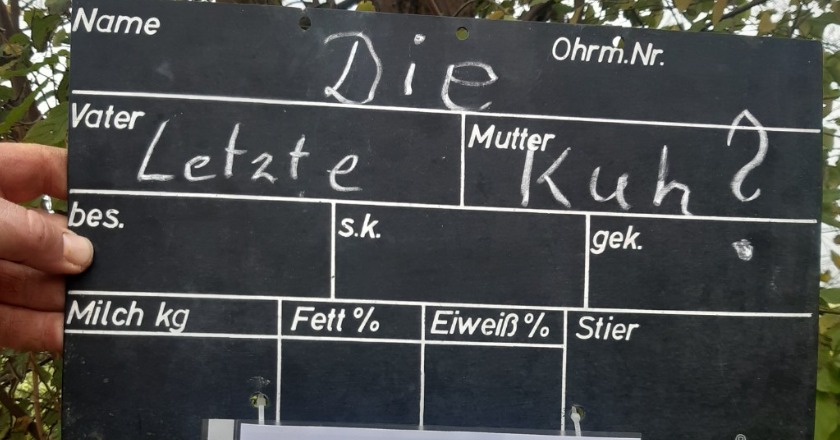 Name Ohrm.Nr.
Die
Vater Mutter
Letzte Kuh?
bes. s.k. gek.
Milch kg Fett % Eiweiß % Stier